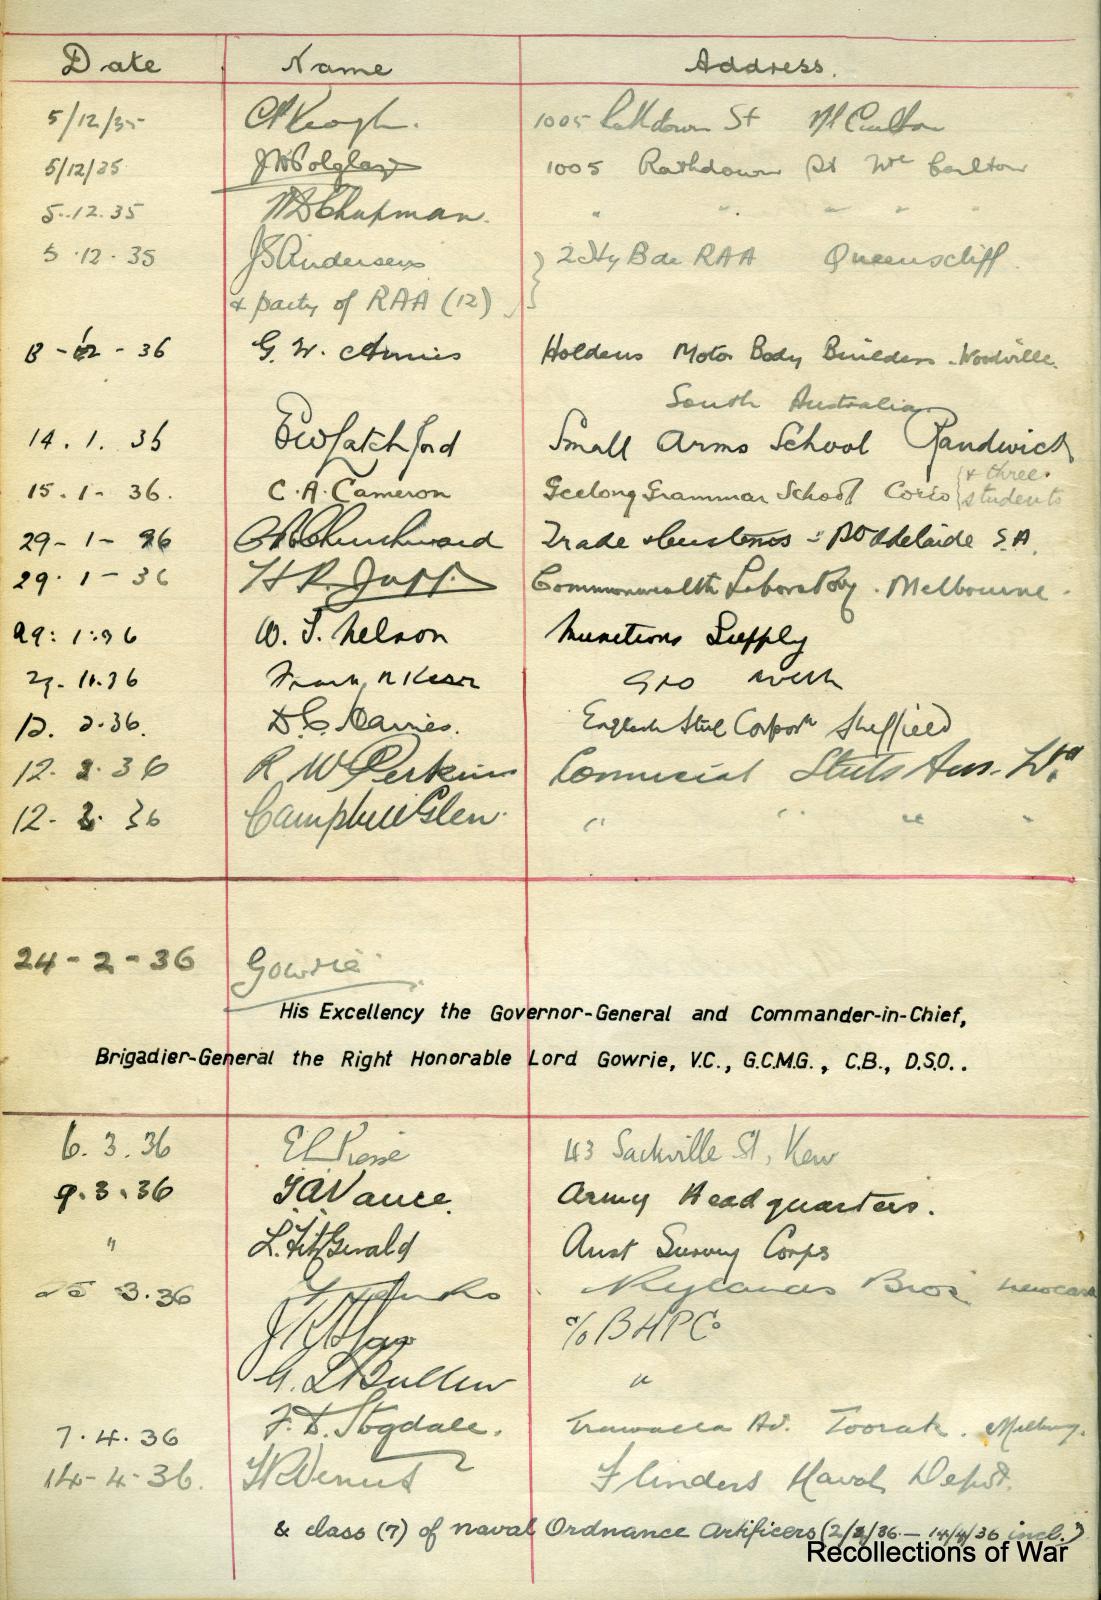 Date Name Address.
5/12/35 Keogh. 1005 Rathdown St Nth Carlton
5/12/35 JW Polglase 1005 Rathdown St Nth Carlton
5.12.35 Chapman. " " " " "
5.12.35 JS Andersen 2 Hy Bde RAA Queenscliff.
& party of RAA (12)
- 36 G. W. Annis Holdens Motor Body Builders. Woodville.
South Australia
14. 1. 36 Small Arms School Randwick
15. 1 - 36. C. A. Cameron Geelong Grammar School Corio {& three students
29 - 1 - 36 Trade & Customs - Adelaide S.A.
29. 1 - 36 H R. Jupp. Commonwealth Laboratory. Melbourne.
29: 1: 36 W. J. Nelson Munitions Supply
36 Frank R Kerr
12. 2.36. D.C. Davies. English Steel Corporn Sheffield
12. 2. 36 R W Perkins Comercial Steels Aus. Ltd
12. 2. 36 Campbell Glen. " " " "
24 - 2 - 36 Gowrie.
His Excellency the Governor-General and Commander-in-Chief,
Brigadier-General the Right Honorable Lord Gowrie, V.C., G.C.M.G., C.B., D.S.O..
6. 3. 36 E L Piesse 43 Sackville St, Kew
9. 3. 36 J.A. Vance. Army Headquarters.
" L. FitzGerald Aust Survey Corps
3. 36 Rylands Bros. Newcas
c/o B H P Co
Bullen "
7. 4. 36 F. D. Stogdale. Trawalla Av. Toorak.
14 - 4 - 36. Venus Flinders Naval Depot.
& class (7) of naval Ordnance Artificers (2/3/36 — 14/4/36 incl.)
Recollections of War